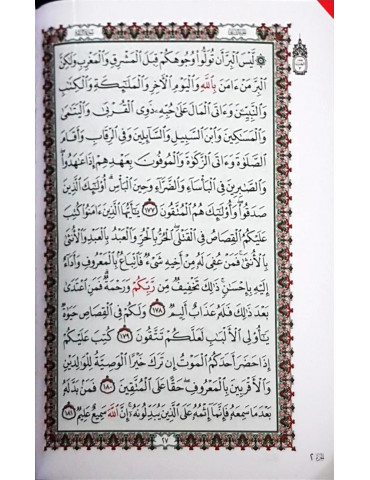 ۞ لَّيْسَ ٱلْبِرَّ أَن تُوَلُّوا۟ وُجُوهَكُمْ قِبَلَ ٱلْمَشْرِقِ وَٱلْمَغْرِبِ وَلَٰكِنَّ
ٱلْبِرَّ مَنْ ءَامَنَ بِٱللَّهِ وَٱلْيَوْمِ ٱلْءَاخِرِ وَٱلْمَلَٰٓئِكَةِ وَٱلْكِتَٰبِ
وَٱلنَّبِيِّۦنَ وَءَاتَى ٱلْمَالَ عَلَىٰ حُبِّهِۦ ذَوِى ٱلْقُرْبَىٰ وَٱلْيَتَٰمَىٰ
وَٱلْمَسَٰكِينَ وَٱبْنَ ٱلسَّبِيلِ وَٱلسَّآئِلِينَ وَفِى ٱلرِّقَابِ وَأَقَامَ
ٱلصَّلَوٰةَ وَءَاتَى ٱلزَّكَوٰةَ وَٱلْمُوفُونَ بِعَهْدِهِمْ إِذَا عَٰهَدُوا۟
وَٱلصَّٰبِرِينَ فِى ٱلْبَأْسَآءِ وَٱلضَّرَّآءِ وَحِينَ ٱلْبَأْسِ أُو۟لَٰٓئِكَ ٱلَّذِينَ
صَدَقُوا۟ وَأُو۟لَٰٓئِكَ هُمُ ٱلْمُتَّقُونَ ١٧٧ يَٰٓأَيُّهَا ٱلَّذِينَ ءَامَنُوا۟ كُتِبَ
عَلَيْكُمُ ٱلْقِصَاصُ فِى ٱلْقَتْلَى ٱلْحُرُّ بِٱلْحُرِّ وَٱلْعَبْدُ بِٱلْعَبْدِ وَٱلْأُنثَىٰ
بِٱلْأُنثَىٰ فَمَنْ عُفِىَ لَهُۥ مِنْ أَخِيهِ شَىْءٌ فَٱتِّبَاعٌۢ بِٱلْمَعْرُوفِ وَأَدَآءٌ
إِلَيْهِ بِإِحْسَٰنٍ ذَٰلِكَ تَخْفِيفٌ مِّن رَّبِّكُمْ وَرَحْمَةٌ فَمَنِ ٱعْتَدَىٰ
بَعْدَ ذَٰلِكَ فَلَهُۥ عَذَابٌ أَلِيمٌ ١٧٨ وَلَكُمْ فِى ٱلْقِصَاصِ حَيَوٰةٌ
يَٰٓأُو۟لِى ٱلْأَلْبَٰبِ لَعَلَّكُمْ تَتَّقُونَ ١٧٩ كُتِبَ عَلَيْكُمْ
إِذَا حَضَرَ أَحَدَكُمُ ٱلْمَوْتُ إِن تَرَكَ خَيْرًا ٱلْوَصِيَّةُ لِلْوَٰلِدَيْنِ
وَٱلْأَقْرَبِينَ بِٱلْمَعْرُوفِ حَقًّا عَلَى ٱلْمُتَّقِينَ ١٨٠ فَمَنۢ بَدَّلَهُۥ
بَعْدَ مَا سَمِعَهُۥ فَإِنَّمَآ إِثْمُهُۥ عَلَى ٱلَّذِينَ يُبَدِّلُونَهُۥٓ إِنَّ ٱللَّهَ سَمِيعٌ عَلِيمٌ ١٨١
٢٧